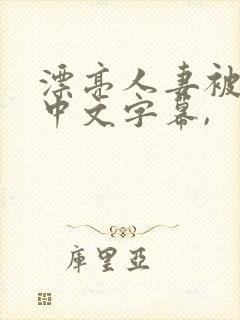 漂亮人妻被
中文字幕,
库里亚